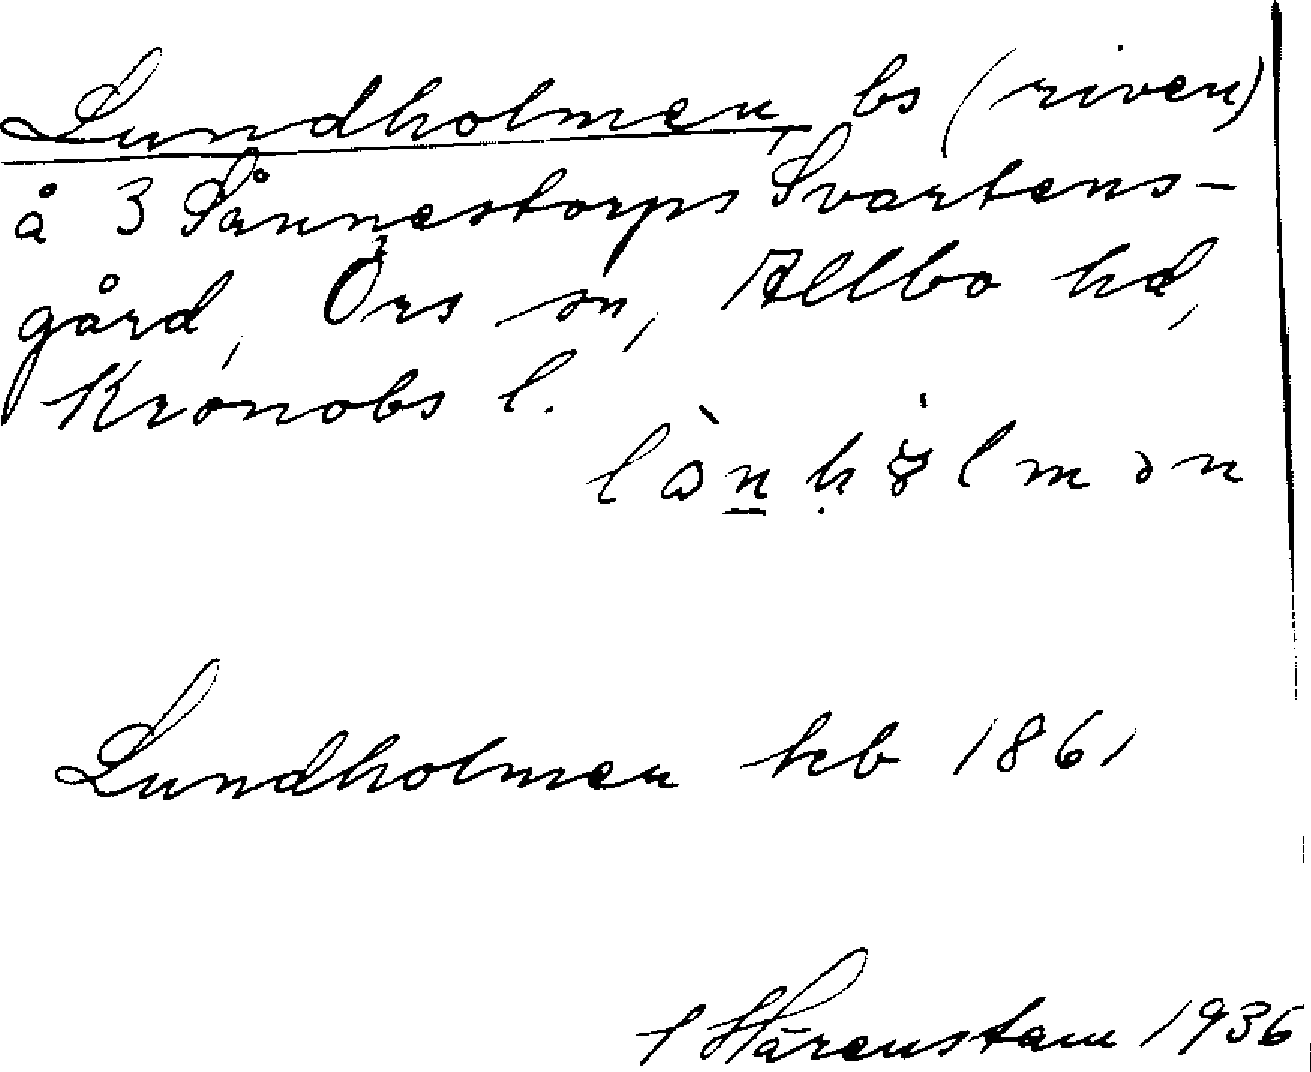 Lundholmen, bs (riven)
å 3 Sånnestorps Svartens-
gård, Örs sn, Allbo hd,
Kronobs l.
Lundholmen kb 1861
Härenstam 1936